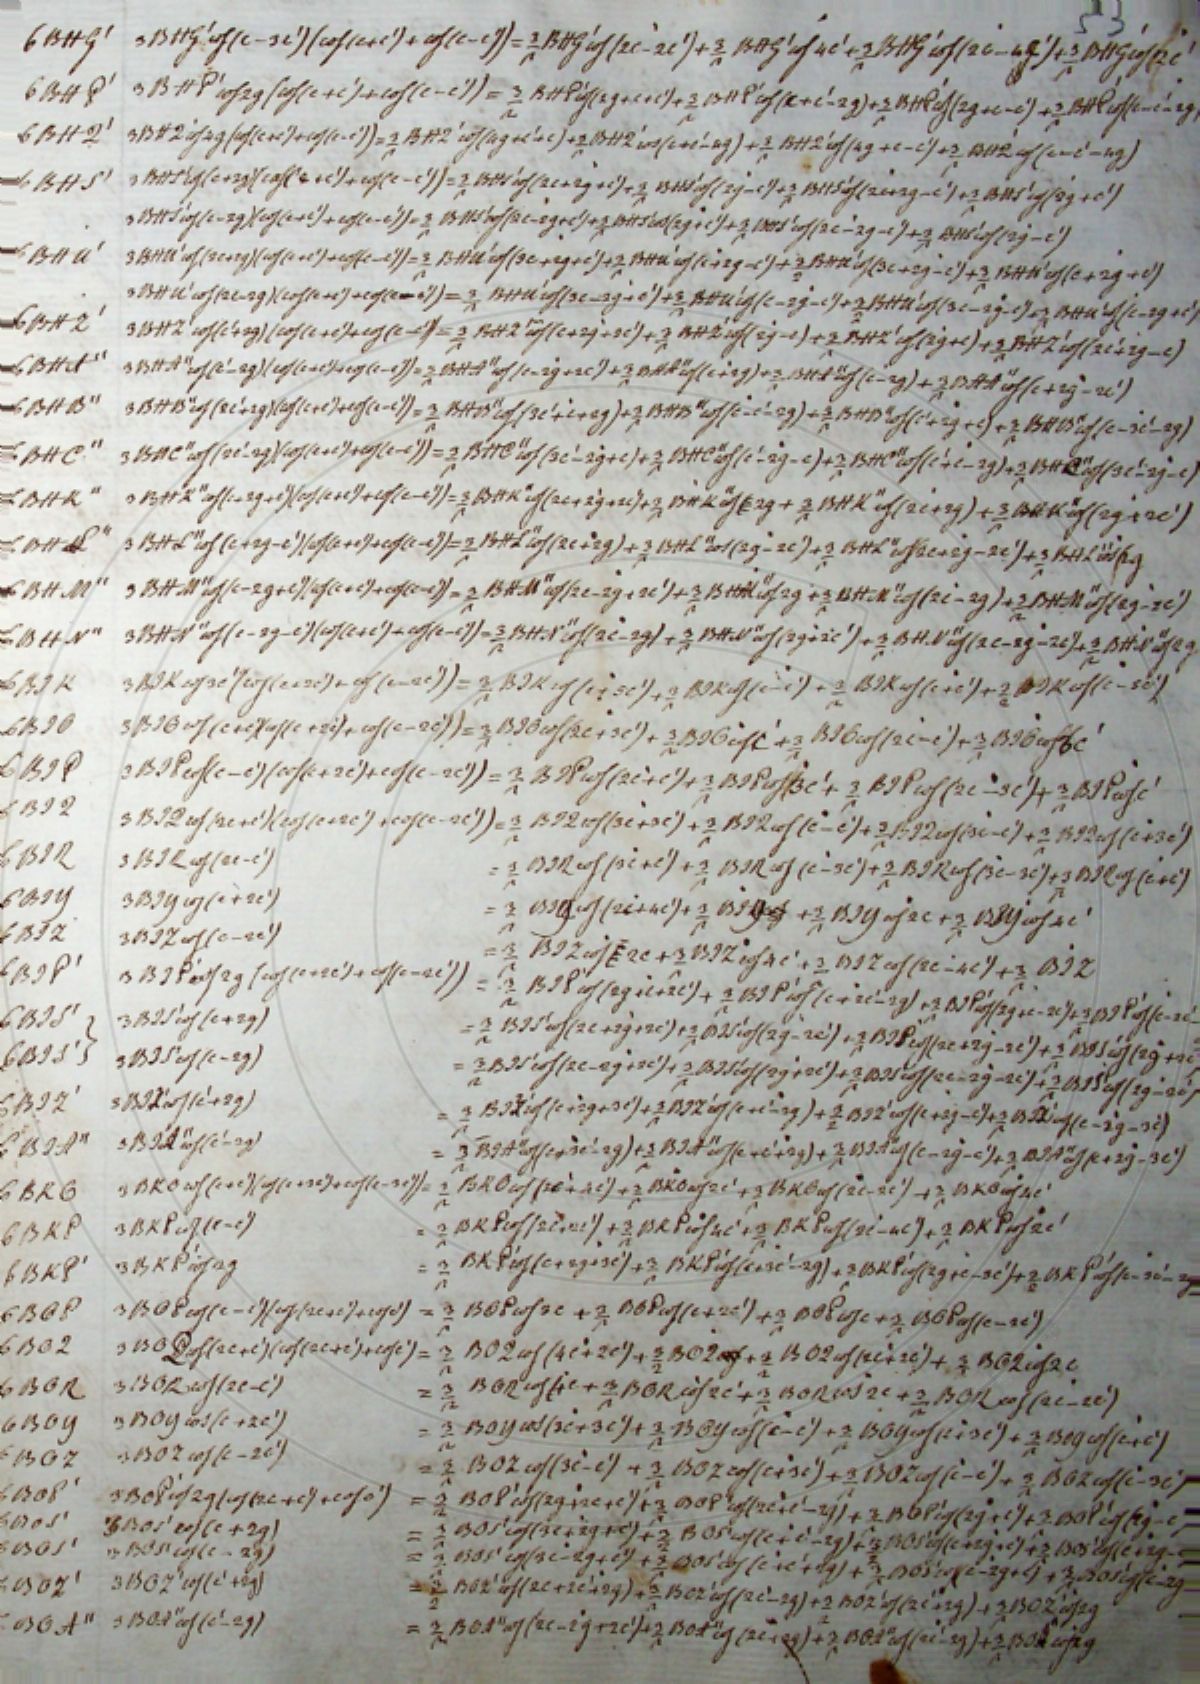 6BHG' 3BHG'cos(c-3c')(cos(c+c')+cos(c-c'))=3/2 BHG'cos(2c-2c')+3/2 BHG'cos4c'+3/2 BHG'cos(2c-4c')+3/2 BHG'cos(2c'
6BHP' 3BHP'cos2g(cos(c+c')+cos(c-c'))=3/2 BHP'cos(2g+c+c')+3/2 BHP'cos(c+c'-2g)+3/2 BHP'cos(2g+c-c')+3/2 BHP'cos(c-c'-2g
6BHQ' 3BHQ'cos4g(cos(c+c')+cos(c-c'))=3/2 BHQ'cos(4g+c'+c)+3/2 BHQ'cos(c+c'-4g)+3/2 BHQ'cos(4g+c-c')+3/2 BHQ'cos(c-c'-4g)
6BHS' 3BHS'cos(c+2g)(cos(c+c')+cos(c-c'))=3/2 BHS'cos(2c+2g+c')+3/2 BHS'cos(2g-c')+3/2 BHS'cos(2c+2g-c')+3/2 BHS'cos(2g+c')
3BHS'cos(c-2g)(cos(c+c')+cos(c-c'))=3/2 BHS'cos(2c-2g+c')+3/2 BHS'cos(2g+c')+3/2 BHS'cos(2c-2g-c')+3/2 BHS'cos(2g-c')
6BHU' 3BHU'cos(2c+2g)(cos(c+c')+cos(c-c'))=3/2 BHU'cos(3c+2g+c')+3/2 BHU'cos(c+2g-c')+3/2 BHU'cos(3c+2g-c')+3/2 BHU'cos(c+2g+c')
3BHU'cos(2c-2g)(cos(c+c')+cos(c-c'))=3/2 BHU'cos(3c-2g+c')+3/2 BHU'cos(c-2g-c')+3/2 BHU'cos(3c-2g-c')+3/2 BHU'cos(c-2g+c')
6BHZ' 3BHZ'cos(c'+2g)(cos(c+c')+cos(c-c'))=3/2 BHZ'cos(c+2g+2c')+3/2 BHZ'cos(2g-c)+3/2 BHZ'cos(2g+c)+3/2 BHZ'cos(2c'+2g-c)
6BHA'' 3BHA''cos(c'-2g)(cos(c+c')+cos(c-c'))=3/2 BHA''cos(c-2g+2c')+3/2 BHA''cos(c+2g)+3/2 BHA''cos(c-2g)+3/2 BHA''cos(c+2g-2c')
6BHB'' 3BHB''cos(2c'+2g)(cos(c+c')+cos(c-c'))=3/2 BHB''cos(3c'+c+2g)+3/2 BHB''cos(c-c'-2g)+3/2 BHB''cos(c'+2g+c)+3/2 BHB''cos(c-3c'-2g)
6BHC'' 3BHC''cos(2c'-2g)(cos(c+c')+cos(c-c'))=3/2 BHC''cos(3c'-2g+c)+3/2 BHC''cos(c'-2g-c)+3/2 BHC''cos(c'+c-2g)+3/2 BHC''cos(3c'-2g-c)
6BHK'' 3BHK''cos(c+2g+c')(cos(c+c')+cos(c-c'))=3/2 BHK''cos(2c+2g+2c')+3/2 BHK''cos2g+3/2 BHK''cos(2c+2g)+3/2 BHK''cos(2g+2c')
6BHL'' 3BHL''cos(c+2g-c')(cos(c+c')+cos(c-c'))=3/2 BHL''cos(2c+2g)+3/2 BHL''cos(2g-2c')+3/2 BHL''cos(2c+2g-2c')+3/2 BHL''cos2g
6BHM'' 3BHM''cos(c-2g+c')(cos(c+c')+cos(c-c'))=3/2 BHM''cos(2c-2g+2c')+3/2 BHM''cos2g+3/2 BHM''cos(2c-2g)+3/2 BHM''cos(2g-2c')
6BHN'' 3BHN''cos(c-2g-c')(cos(c+c')+cos(c-c'))=3/2 BHN''cos(2c-2g)+3/2 BHN''cos(2g+2c')+3/2 BHN''cos(2c-2g-2c')+3/2 BHN''cos2g
6BIK 3BIKcos3c'(cos(c+2c')+cos(c-2c'))=3/2 BIKcos(c+5c')+3/2 BIKcos(c-c')+3/2 BIKcos(c+c')+3/2 BIKcos(c-5c')
6BIO 3BIOcos(c+c')(cos(c+2c')+cos(c-2c'))=3/2 BIOcos(2c+3c')+3/2 BIOcosc'+3/2 BIOcos(2c-c')+3/2 BIOcos3c'
6BIP 3BIPcos(c-c')(cos(c+2c')+cos(c-2c'))=3/2 BIPcos(2c+c')+3/2 BIPcos3c'+3/2 BIPcos(2c-3c')+3/2 BIPcosc'
6BIQ 3BIQcos(2c+c')(cos(c+2c')+cos(c-2c'))=3/2 BIQcos(3c+3c')+3/2 BIQcos(c-c')+3/2 BIQcos(3c-c')+3/2 BIQcos(c+3c')
6BIR 3BIRcos(2c-c') =3/2 BIRcos(3c+c')+3/2 BIRcos(c-3c')+3/2 BIRcos(3c-3c')+3/2 BIRcos(c+c')
6BIY 3BIYcos(c+2c') =3/2 BIYcos(2c+4c')+3/2 BIY+3/2 BIYcos2c+3/2 BIYcos4c'
6BIZ 3BIZcos(c-2c') =3/2 BIZcos2c+3/2 BIZcos4c'+3/2 BIZcos(2c-4c')+3/2 BIZ
6BIP' 3BIP'cos2g(cos(c+2c')+cos(c-2c'))=3/2 BIP'cos(2g+c+2c')+3/2 BIP'cos(c+2c'-2g)+3/2 BIP'cos(2g+c-2c')+3/2 BIP'cos(c-2c'
6BIS' 3BIS'cos(c+2g) =3/2 BIS'cos(2c+2g+2c')+3/2 BIS'cos(2g-2c')+3/2 BIS'cos(2c+2g-2c')+3/2 BIS'cos(2g+2c'
6BIS' 3BIS'cos(c-2g) =3/2 BIS'cos(2c-2g+2c')+3/2 BIS'cos(2g+2c')+3/2 BIS'cos(2c-2g-2c')+3/2 BIS'cos(2g-2c')
6BIZ' 3BIZ'cos(c'+2g) =3/2 BIZ'cos(c+2g+3c')+3/2 BIZ'cos(c+c'-2g)+3/2 BIZ'cos(c+2g-c')+3/2 BIZ'cos(c-2g-3c')
6BIA'' 3BIA''cos(c'-2g) =3/2 BIA''cos(c+3c'-2g)+3/2 BIA''cos(c+c'+2g)+3/2 BIA''cos(c-2g-c')+3/2 BIA''cos(c+2g-3c')
6BKO 3BKOcos(c+c')(cos(c+3c')+cos(c-3c'))=3/2 BKOcos(2c+4c')+3/2 BKOcos2c'+3/2 BKOcos(2c-2c')+3/2 BKOcos4c'
6BKP 3BKPcos(c-c') =3/2 BKPcos(2c+2c')+3/2 BKPcos4c'+3/2 BKPcos(2c-4c')+3/2 BKPcos2c'
6BKP' 3BKP'cos2g =3/2 BKP'cos(c+2g+3c')+3/2 BKP'cos(c+3c'-2g)+3/2 BKP'cos(2g+c-3c')+3/2 BKP'cos(c-3c'-2g
6BOP 3BOPcos(c-c')(cos(2c+c')+cosc')=3/2 BOPcos3c+3/2 BOPcos(c+2c')+3/2 BOPcosc+3/2 BOPcos(c-2c')
6BOQ 3BOQcos(2c+c')(cos(2c+c')+cosc')=3/2 BOQcos(4c+2c')+3/2 BOQ+3/2 BOQcos(2c+2c')+3/2 BOQcos2c
6BOR 3BORcos(2c-c') =3/2 BORcos4c+3/2 BORcos2c'+3/2 BORcos2c+3/2 BORcos(2c-2c')
6BOY 3BOYcos(c+2c') =3/2 BOYcos(3c+3c')+3/2 BOYcos(c-c')+3/2 BOYcos(c+3c')+3/2 BOYcos(c+c')
6BOZ 3BOZcos(c-2c') =3/2 BOZcos(3c-c')+3/2 BOZcos(c+3c')+3/2 BOZcos(c-c')+3/2 BOZcos(c-3c'
6BOP' 3BOP'cos2g(cos(2c+c')+cosc') =3/2 BOP'cos(2g+2c+c')+3/2 BOP'cos(2c+c'-2g)+3/2 BOP'cos(2g+c')+3/2 BOP'cos(2g-c'
6BOS' 3BOS'cos(c+2g) =3/2 BOS'cos(3c+2g+c')+3/2 BOS'cos(c+c'-2g)+3/2 BOS'cos(c+2g+c')+3/2 BOS'cos(c+2g-
6BOS' 3BOS'cos(c-2g) =3/2 BOS'cos(3c-2g+c')+3/2 BOS'cos(c+c'+2g)+3/2 BOS'cos(c-2g+c')+3/2 BOS'cos(c-2g
6BOZ' 3BOZ'cos(c'+2g) =3/2 BOZ'cos(2c+2c'+2g)+3/2 BOZ'cos(2c-2g)+3/2 BOZ'cos(2c'+2g)+3/2 BOZ'cos2g
6BOA'' 3BOA''cos(c'-2g) =3/2 BOA''cos(2c-2g+2c')+3/2 BOA''cos(2c+2g)+3/2 BOA''cos(2c'-2g)+3/2 BOA''cos2g